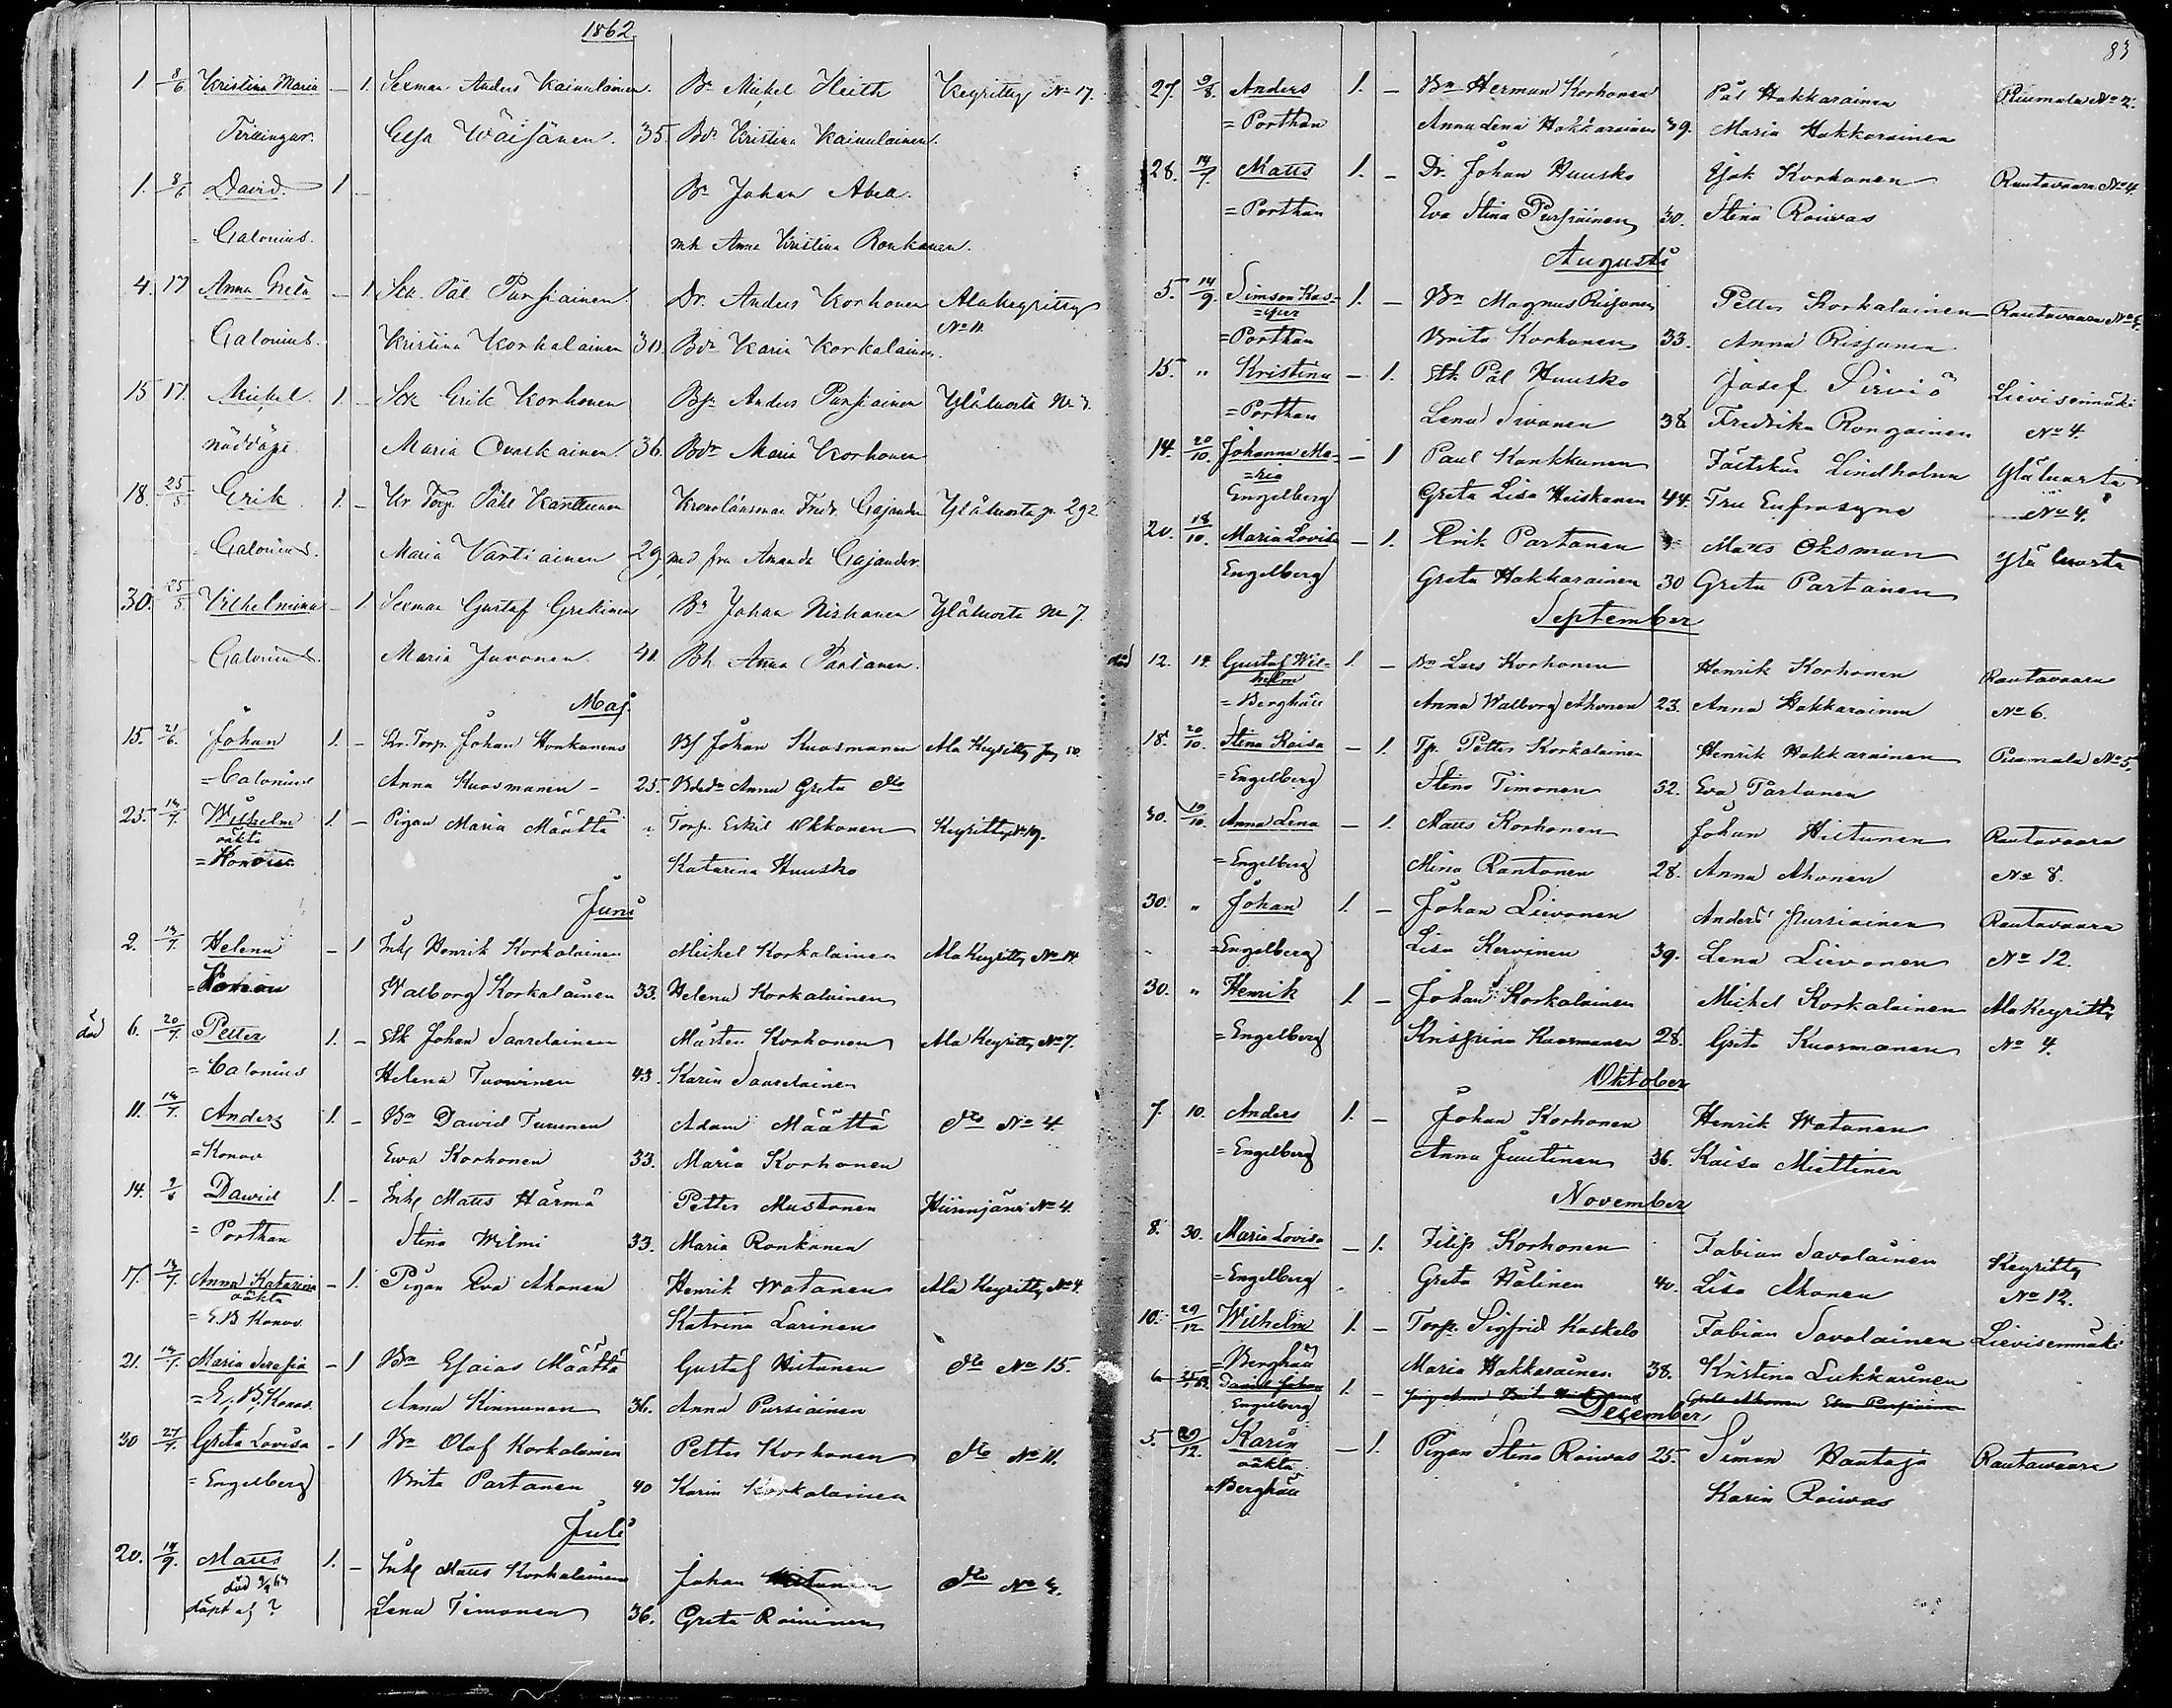 1862.
1 8/6 Kristina Maria — 1. Sexman Anders Kainulainen. Bn Michel Heith Keyritty No 17.
Tvillingar. Elsa Wäisänen. 35. Bdr Kristina Kainulainen.
1. 8/6 David. 1 — Bn Johan Abel.
Calonius. mh Anna Kristina Ronkanen.
4. 17 Anna Greta — 1 Pål Pursiainen. Dr. Anders Korhonen Alakeyritty
No 11.
Calonius. Kristina Korkalainen 30. Bdr Karin Korkalainen.
15 17. Michel. 1. — Erik Korhonen Anders Pursiainen Yläluosta No 3.
nöddöpt. Maria Ovaskainen. 36. Bdr Maria Korhonen
18. 25/5 Erik 1. — Kr. Torp. Påhl Karttunen Kronolänsman Fredr. Cajander Yläluosta p. 292
Calonius. Maria Vartiainen 29. med fru Amanda Cajander.
30. 25/5. Vilhelmina — 1. Sexman Gustaf Bn Johan Niskanen Yläluosta No 7.
Calonius. Maria Juvonen. 41. Bh. Anna Partanen.
Maj.
15. 21/6. Johan 1. — Kr. Torp. Johan Honkanens Johan Kuosmanen Ala Keyritty 50.
=Calonius Anna Kuosmanen — 25. Anna Greta Do
25. 13/7. Wilhelm 1. — Pigan Maria Määttä Torp. Eskil Okkonen Keyritty No 19.
oäkta
=Konow Katarina Huusko
Juni
2. 13/7. Helena — 1 Inh. Henrik Korkalainen Michel Korkalainen Ala Keyritty No 14.
=Konow Walborg Korkalainen 33. Helena Korkalainen
död 6. 20/7. Petter 1. — Johan Saarelainen Mårten Korhonen Ala Keyritty No 7.
=Calonius Helena Tuovinen 43. Karin Saarelainen
11. 13/7. Anders 1. — Bn Dawid Turunen Adam Määttä Do No 4.
=Konow Ewa Korhonen 33. Maria Korhonen
14. 9/6 Dawid 1. — Inh. Matts Härmä Petter Mustonen Kiirinjärvi No 4.
= Porthan Stina Wilmi 33. Maria Ronkanen
17. 13/7. Anna Katarina — 1. Pigan Eva Ahonen Henrik Watanen Ala Keyritty No 4.
oäkta
= E.B Konow. Katrina Larinen
21. 13/7. Maria Serafia — 1 Bn Esaias Määttä Gustaf Hiltunen Do No 15.
=E. B. Konow. Anna Kinnunen 36. Anna Pursiainen
30 27/7. Greta Lovisa — 1 Bn Olof Korkalainen Petter Korhonen Do No 11.
= Engelberg Brita Partanen 40 Karin Korkalainen
Juli
20. 14/9. Matts 1. — Inh. Matts Korkalainen Johan Do No 4.
död
döpt af ? Lena Timonen 36. Greta Roininen
83
27. 9/8. Anders 1. — Bn Herman Korhonen Pål Hakkarainen Puumala No 2.
= Porthan Anna Lena Hakkarainen 39. Maria Hakkarainen
28. 14/9. Matts 1. — Dr. Johan Huusko Isak Korhonen Rautavaara No 4.
= Porthan Eva Stina Pursiainen 30. Stina Roivas
Augusti
5. 14/9. Simson Kas- 1. — Bn Magnus Rissanen Petter Korkalainen Rautavaara No 6.
=per
=Porthan Brita Korhonen 33. Anna Rissanen
15. " Kristina — 1. Pål Huusko Josef Sirviö Lievisenmäki
=Porthan Lena Sivonen 38 Fredrika Rongainen No 4.
14. 20/10. Johanna Ma- — 1 Paul Kankkunen Lindholm Yläluosta
=ria
Engelberg Greta Lisa Heiskanen 44. Fru Eufrosyne No 4.
20. 18/10. Maria Lovisa — 1. Erik Partanen Matts Oksman Yläluosta
Engelberg Greta Hakkarainen 30 Greta Partanen
September
död 12. 14. Gustaf Wil- 1. — Bn Lars Korhonen Henrik Korhonen Rautavaara
helm
= Berghäll Anna Walborg Ahonen 23. Anna Hakkarainen No 6.
18. 20/10. Stina Kaisa — 1. Tp. Petter Korkalainen Henrik Hakkarainen Puumala No 5.
=Engelberg Stina Timonen 32. Eva Partanen
30. 19/10. Anna Lena — 1. Matts Korhonen Johan Hiltunen Rautavaara
=Engelberg Mina Rantonen 28. Anna Ahonen No 8.
30. " Johan 1. — Johan Lievonen Anders Pursiainen Rautavaara
=Engelberg Lisa Kervinen 39. Lena Lievonen No 12.
30. " Henrik 1. — Johan Korkalainen Michel Korkalainen Ala Keyritty
= Engelberg Kristina Kuosmanen 28. Greta Kuosmanen No 4.
Oktober
7. 10. Anders 1. — Johan Korhonen Henrik Watanen
= Engelberg Anna Juutinen 36. Kaisa Miettinen
November
8. 30. Maria Lovisa — 1. Filip Korhonen Fabian Savolainen Keyritty
=Engelberg Greta Hälinen 40. Lisa Ahonen No 12.
10. 29/12 Wilhelm 1. — Torp. Sigfrid Kaskelo Fabian Savolainen Lievisenmäki
=Berghäll Maria Hakkarainen 38. Kristina Lukkarinen
David Johan 1. — Anna Brita Greta Ahonen Eva Pursiainen
Engelberg
December
5. 29/12. Karin — 1. Pigan Stina Roivas 25. Simon Hantaja Rautavaara
oäkta
=Berghäll Karin Roivas